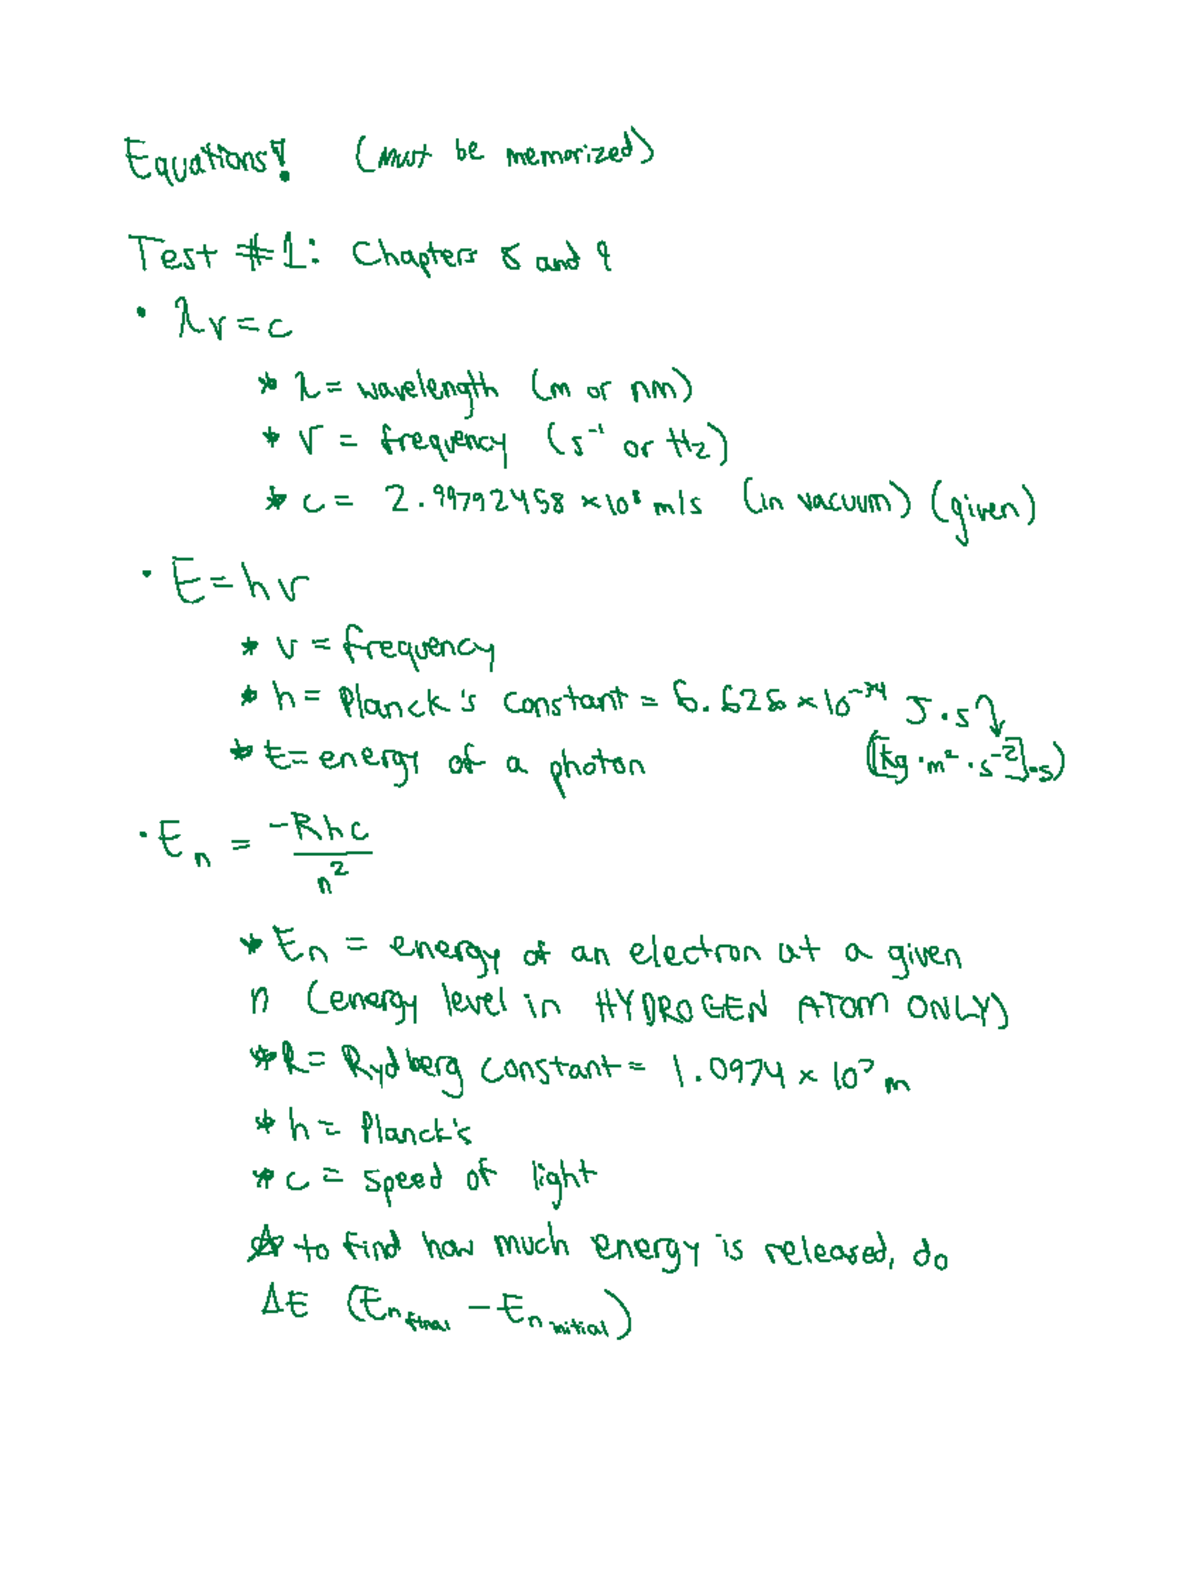 Equations! (must be memorized)
Test #1: Chapters 8 and 9
• λν = c
* λ = wavelength (m or nm)
* ν = frequency (s⁻¹ or Hz)
* c = 2.99792458 ×10⁸ m/s (in vacuum) (given)
• E = hν
* ν = frequency
* h = Planck's constant = 6.626 × 10⁻³⁴ J·s
* E = energy of a photon ([kg·m²·s⁻²]·s)
• Eₙ = -Rhc/n²
* Eₙ = energy of an electron at a given
n (energy level in HYDROGEN ATOM ONLY)
* R = Rydberg constant = 1.0974 × 10⁷ m
* h = Planck's
* c = speed of light
☆ to find how much energy is released, do
ΔE (En final - En initial)